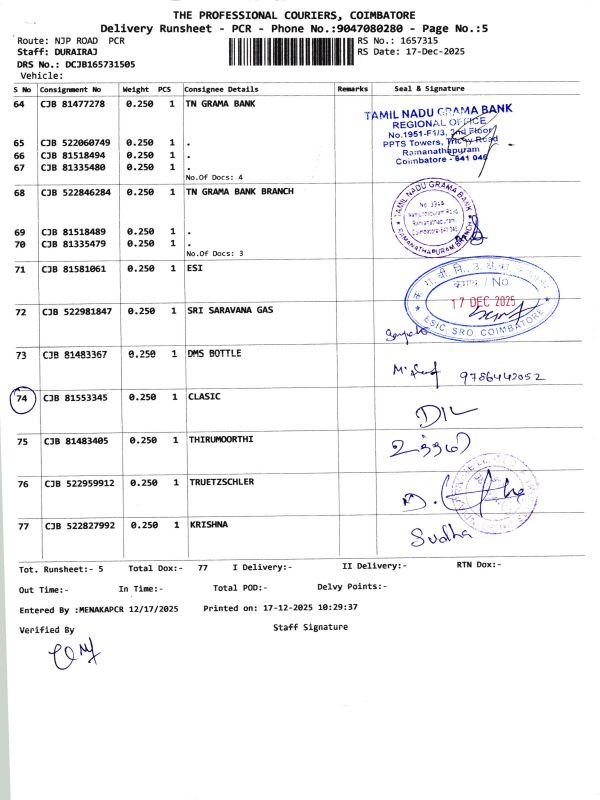 THE PROFESSIONAL COURIERS, COIMBATORE
Delivery Runsheet - PCR - Phone No.:9047080280 - Page No.:5
Route: NJP ROAD PCR
RS No.: 1657315
Staff: DURAIRAJ
RS Date: 17-Dec-2025
DRS No.: DCJB165731505
Vehicle:
S No Consignment No Weight PCS Consignee Details Remarks Seal & Signature
64 CJB 81477278 0.250 1 TN GRAMA BANK
TAMIL NADU GRAMA BANK
REGIONAL OFFICE
No.1951-F1/3, 2nd Floor
PPTS Towers, Trichy Road
Ramanathapuram
Coimbatore - 641 045
65 CJB 522060749 0.250 1 .
66 CJB 81518494 0.250 1 .
67 CJB 81335480 0.250 1 .
No.Of Docs: 4
68 CJB 522846284 0.250 1 TN GRAMA BANK BRANCH
TAMIL NADU GRAMA BANK
RAMANATHAPURAM BRANCH
Ramanathapuram
Coimbatore-641 045
69 CJB 81518489 0.250 1 .
70 CJB 81335479 0.250 1 .
No.Of Docs: 3
71 CJB 81581061 0.250 1 ESI
क्रमांक / No
17 DEC 2025
ESIC SRO COIMBATORE
72 CJB 522981847 0.250 1 SRI SARAVANA GAS
73 CJB 81483367 0.250 1 DMS BOTTLE
9786442052
74 CJB 81553345 0.250 1 CLASIC
75 CJB 81483405 0.250 1 THIRUMOORTHI
76 CJB 522959912 0.250 1 TRUETZSCHLER
77 CJB 522827992 0.250 1 KRISHNA
Sudha
Tot. Runsheet:- 5 Total Dox:- 77 I Delivery:- II Delivery:- RTN Dox:-
Out Time:- In Time:- Total POD:- Delvy Points:-
Entered By :MENAKAPCR 12/17/2025 Printed on: 17-12-2025 10:29:37
Verified By Staff Signature